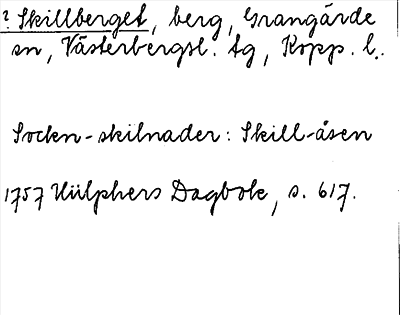 ? Skillberget, berg, Grangärde
sn, Västerbergsl. tg, Kopp. l.
Sockn-skilnader: Skill-åsen
1757 Hülphers Dagbok, s. 617.